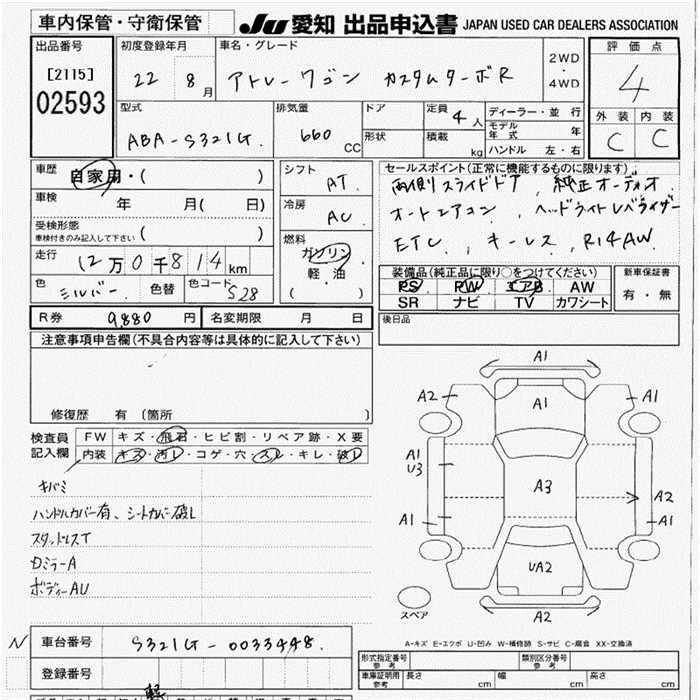 車内保管・守衛保管
JU 愛知 出品申込書 JAPAN USED CAR DEALERS ASSOCIATION
出品番号
[2115]
02593
初度登録年月
22 8月
車名・グレード
アトレーワゴン カスタムターボR
2WD
・
4WD
評価点
4
外装 内装
C C
型式
ABA-S321G.
排気量
660
CC
ドア
形状
定員 4人
積載 kg
ディーラー・並行
モデル年式 年
ハンドル 左・右
車歴
自家用・( )
車検
年 月( 日)
受検形態
車検付きのみ記入して下さい ( )
走行
12万0千814km
色
シルバー.
色替
色コード
S28
シフト
AT.
冷房
AC
燃料
ガソリン
軽・油
( )
セールスポイント(正常に機能するものに限ります)
両側スライドドア、純正オーディオ
オートエアコン、ヘッドライトレベライザー
ETC、キーレス、R14AW.
装備品(純正品に限り○をつけてください)
PS PW エアB AW
SR ナビ TV カワシート
新車保証書
有・無
後日品
R券 9,880 円
名変期限 月 日
注意事項申告欄(不具合内容等は具体的に記入して下さい)
修復歴 有 (箇所 )
検査員
記入欄
FW キズ・飛石・ヒビ割・リペア跡・X要
内装 キズ・汚レ・コゲ・穴・スレ・キレ・破レ
キバミ
ハンドルカバー有、シートカバー破レ
スタットレスT
ロミラーA
ボディーAU
A1
A2
A1
A1
A1
U3
A3
A2
A1
A1
UA2
A2
スペア
A-キズ E-エクボ U-凹み W-補修跡 S-サビ C-腐食 XX-交換済
N
車台番号
S321G-0033448.
登録番号
形式指定番号
参考
類別区分番号
参考
車庫証明用
参考
長さ cm
幅 cm
高さ cm
軽